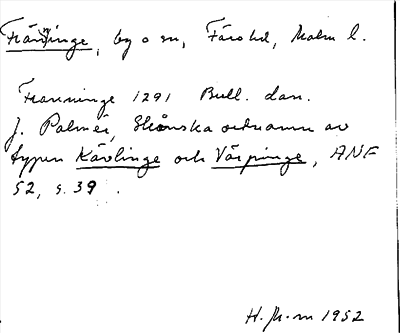 Fränninge, by o sn, Färs hd, Malm l.
Franninge 1291 Bull. dan.
J. Palmér, Skånska ortnamn av
typen Kävlinge och Värpinge, ANF
52, s. 39.
H. J-m 1952